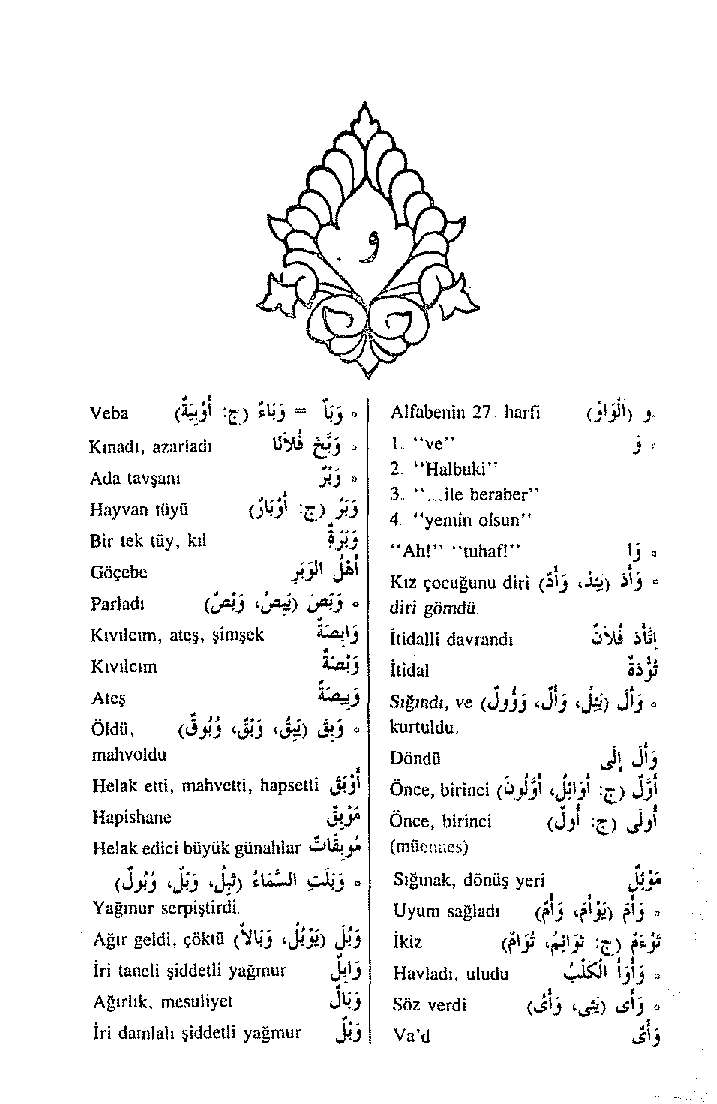 و
Alfabenin 27. harfi و (اَلْوَاوُ)
1. "ve" وَ
2. "Halbuki"
3. "...ile beraber"
4. "yemin olsun"
"Ah!" "tuhaf!" وَا
Kız çocuğunu diri وَأَدَ (يَئِدُ، وَأْدًا)
diri gömdü.
İtidalli davrandı اِتَّأَدَ فُلَانٌ
İtidal تُؤَدَةٌ
Sığındı, ve وَأَلَ (يَئِلُ، وَأْلٌ، وُؤُولٌ)
kurtuldu.
Döndü وَأَلَ إِلَى
Önce, birinci أَوَّلُ (ج: أَوَائِلُ، أَوَّلُونَ)
Önce, birinci أُولَى (ج: أُوَلٌ)
(müennes)
Sığınak, dönüş yeri مَوْئِلٌ
Uyum sağladı وَأَمَ (يَوْأَمُ، وَأْمٌ)
İkiz تَوْءَمٌ (ج: تَوَائِمُ، تَوَامٌ)
Havladı, uludu وَأْوَأَ الْكَلْبُ
Söz verdi وَأَى (يَئِي، وَأْيٌ)
Va'd وَأْيٌ
Veba وَبَأٌ = وَبَاءٌ (ج: أَوْبِيَةٌ)
Kınadı, azarladı وَبَّخَ فُلَانًا
Ada tavşanı وَبْرٌ
Hayvan tüyü وَبَرٌ (ج: أَوْبَارٌ)
Bir tek tüy, kıl وَبَرَةٌ
Göçebe أَهْلُ الْوَبَرِ
Parladı وَبَصَ (يَبِصُ، وَبْصٌ)
Kıvılcım, ateş, şimşek وَابِصَةٌ
Kıvılcım وَبْصَةٌ
Ateş وَبِيصَةٌ
Öldü, وَبِقَ (يَبِقُ، وَبَقٌ، وُبُوقٌ)
mahvoldu
Helak etti, mahvetti, hapsetti أَوْبَقَ
Hapishane مَوْبِقٌ
Helak edici büyük günahlar مُوبِقَاتٌ
وَبَلَتِ السَّمَاءُ (تَبِلُ، وَبْلٌ، وُبُولٌ)
Yağmur serpiştirdi.
Ağır geldi, çöktü وَبُلَ (يَوْبُلُ، وَبَالاً)
İri taneli şiddetli yağmur وَابِلٌ
Ağırlık, mesuliyet وَبَالٌ
İri damlalı şiddetli yağmur وَبْلٌ